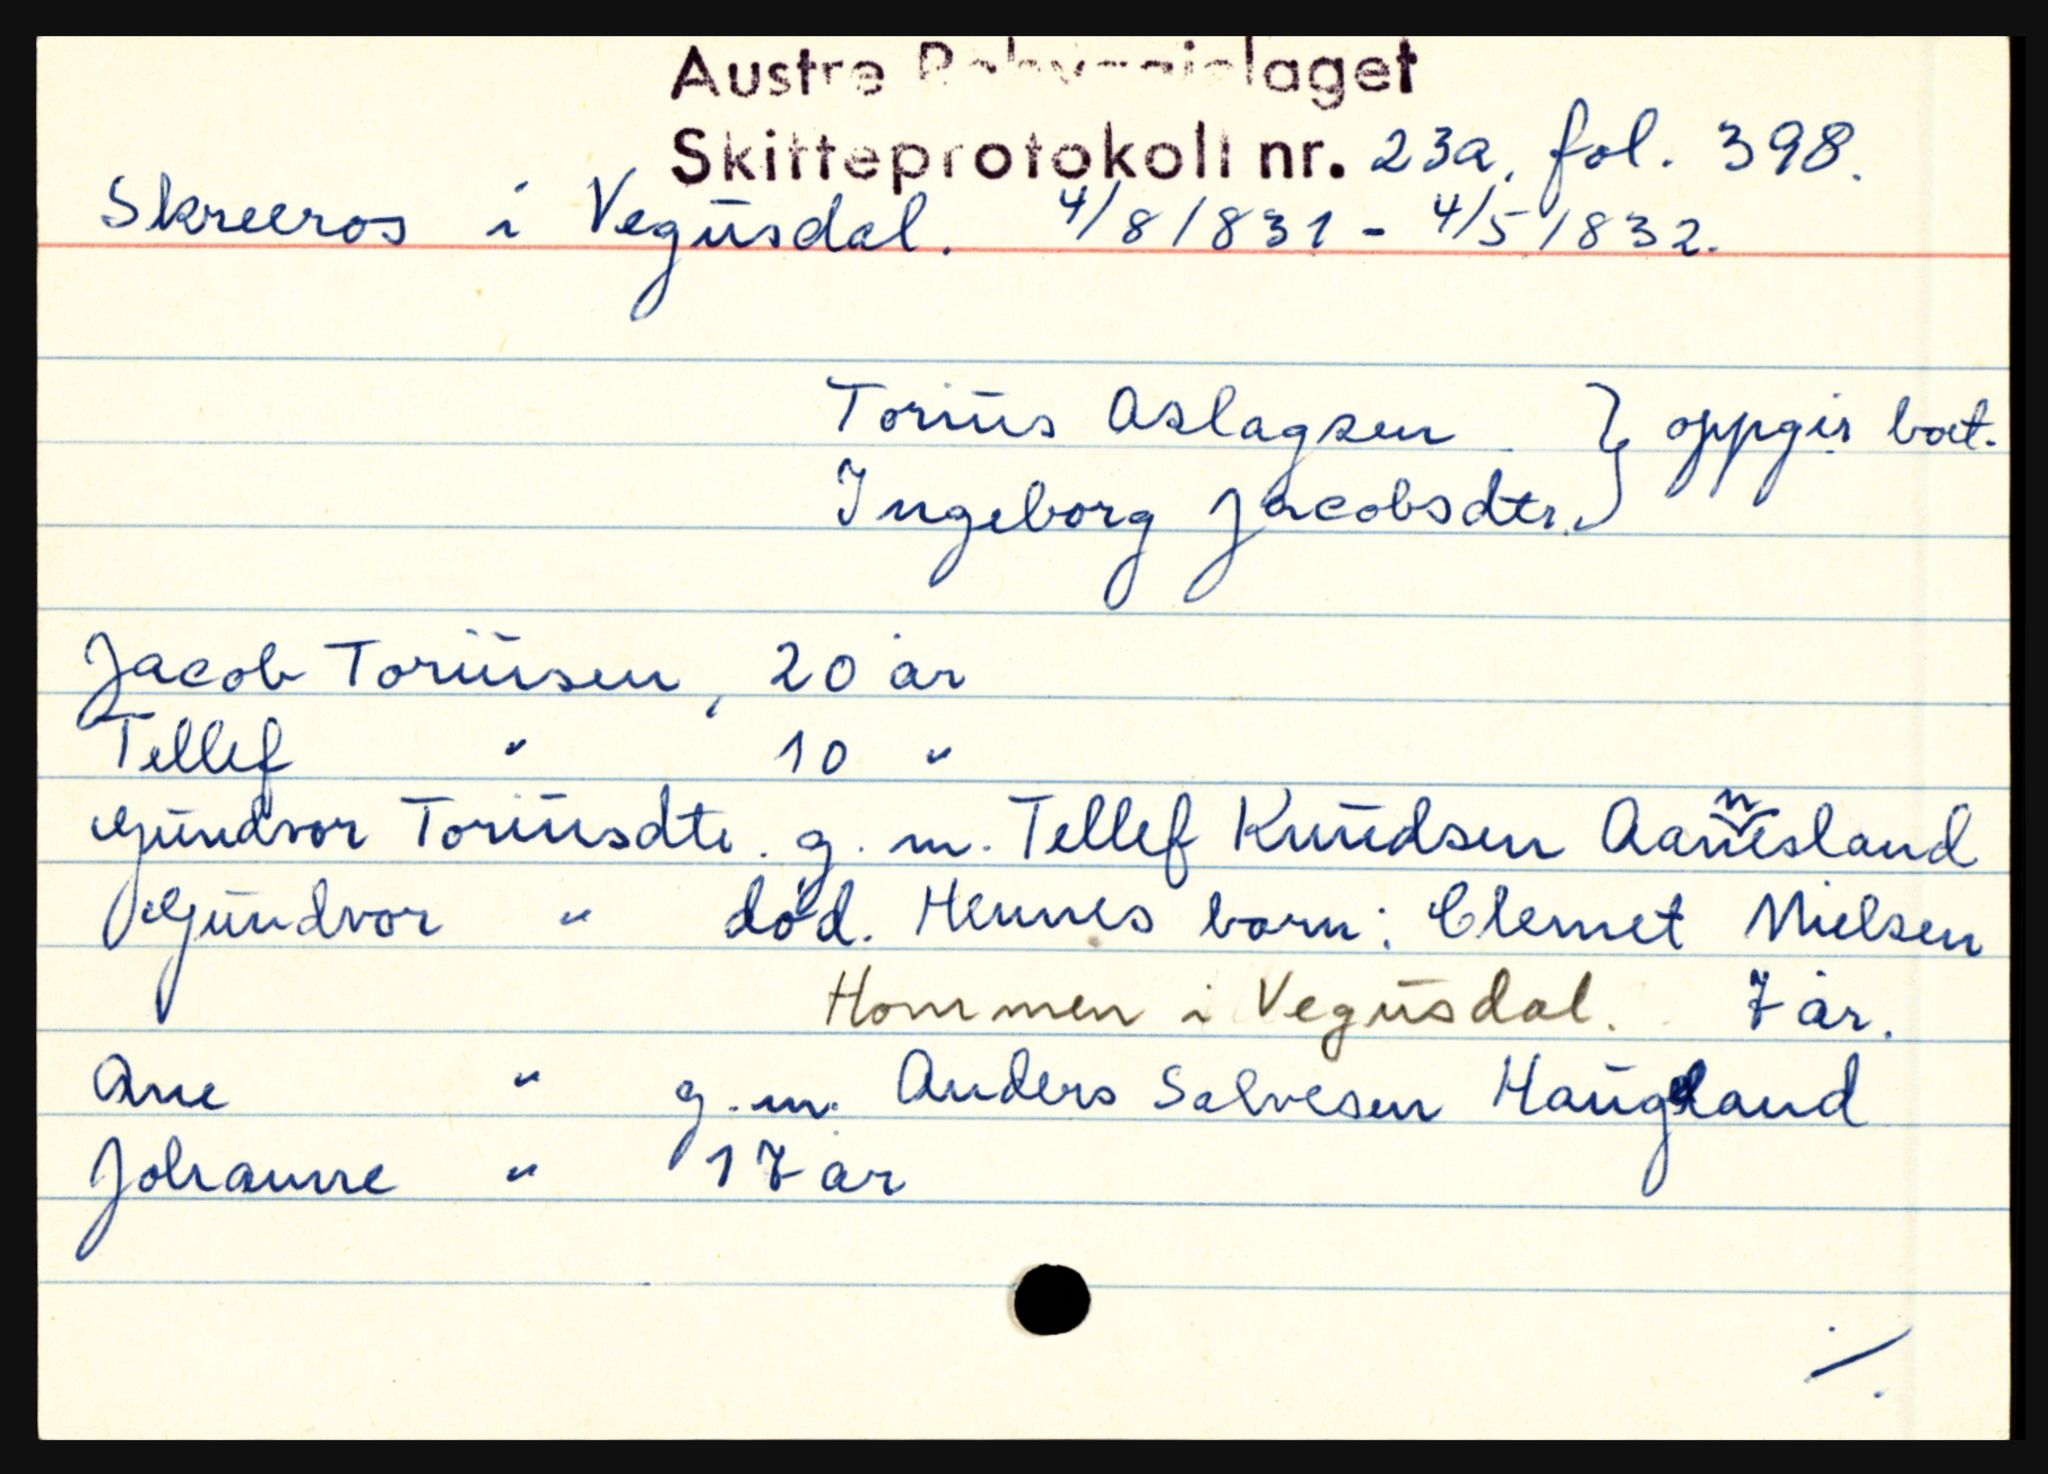 Austre Råbyggjelaget
Skifteprotokoll nr. 23a, fol. 398.
Skreeros i Vegusdal. 4/8 1831 - 4/5 1832.
Torius Aslagsen } oppgir boet.
Ingeborg Jacobsdtr.
Jacob Toriusen, 20 år
Tellef " 10 "
Gundvor Toriusdtr. g. m. Tellef Knudsen Aannesland
Gundvor " død. Hennes barn: Clemet Nielsen
Hommen i Vegusdal. 7 år.
Ane " g. m. Anders Salvesen Haugland
Johanne " 17 år